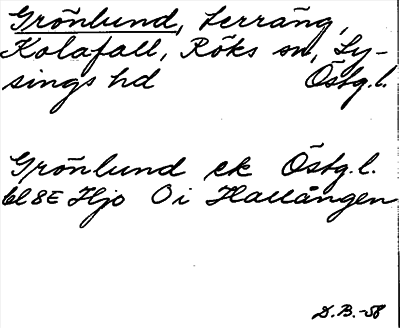 Grönlund, terräng,
Kolafall, Röks sn, Ly-
sings hd Östg.l.
Grönlund ek Östg.l.
bl 8E Hjo O i Hallången
D.B.-58